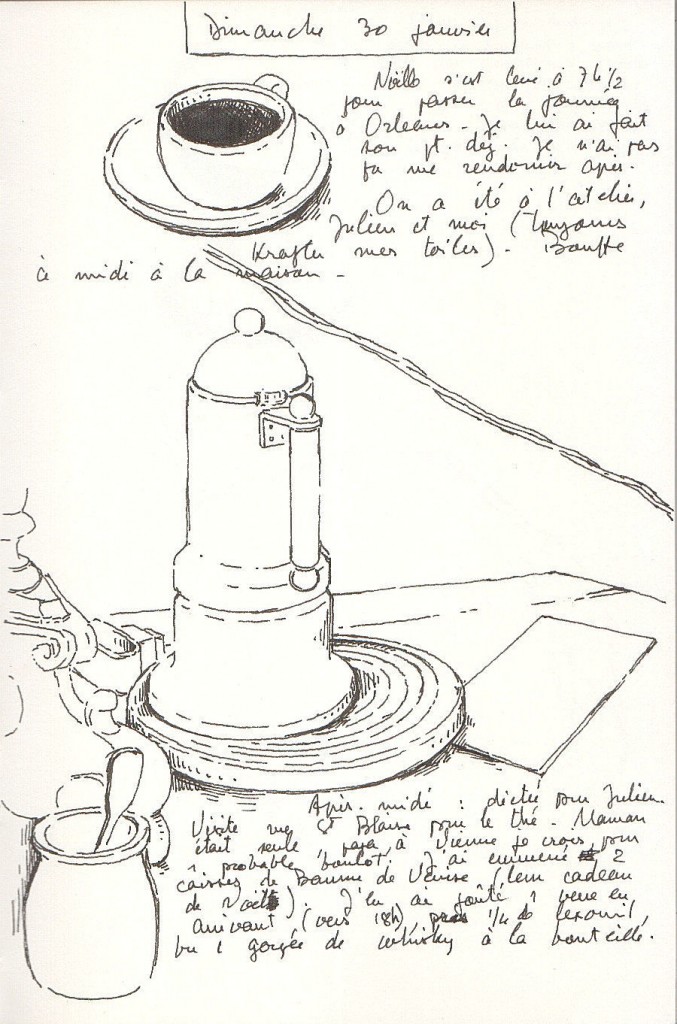 Dimanche 30 janvier
Noëlle s'est levé à 7h 1/2
pour passer la journée
à Orléans - Je lui ai fait
son pt. déj. Je n'ai pas
pu me rendormir après.
On a été à l'atelier,
Julien et moi (toujours
mes toiles) - Bouffe
à midi à la maison -
Après-midi : dictée pour Julien
Visite rue St Blaise pour le thé - Maman
était seule, papa à Vienne je crois pour
1 probable boulot. J'ai emmené 2
caisses de Baume de Venise (leur cadeau
de Noël). J'en ai goûté 1 verre en
arrivant (vers 18h) 1/4 de
bu 1 gorgée de whisky à la bouteille.